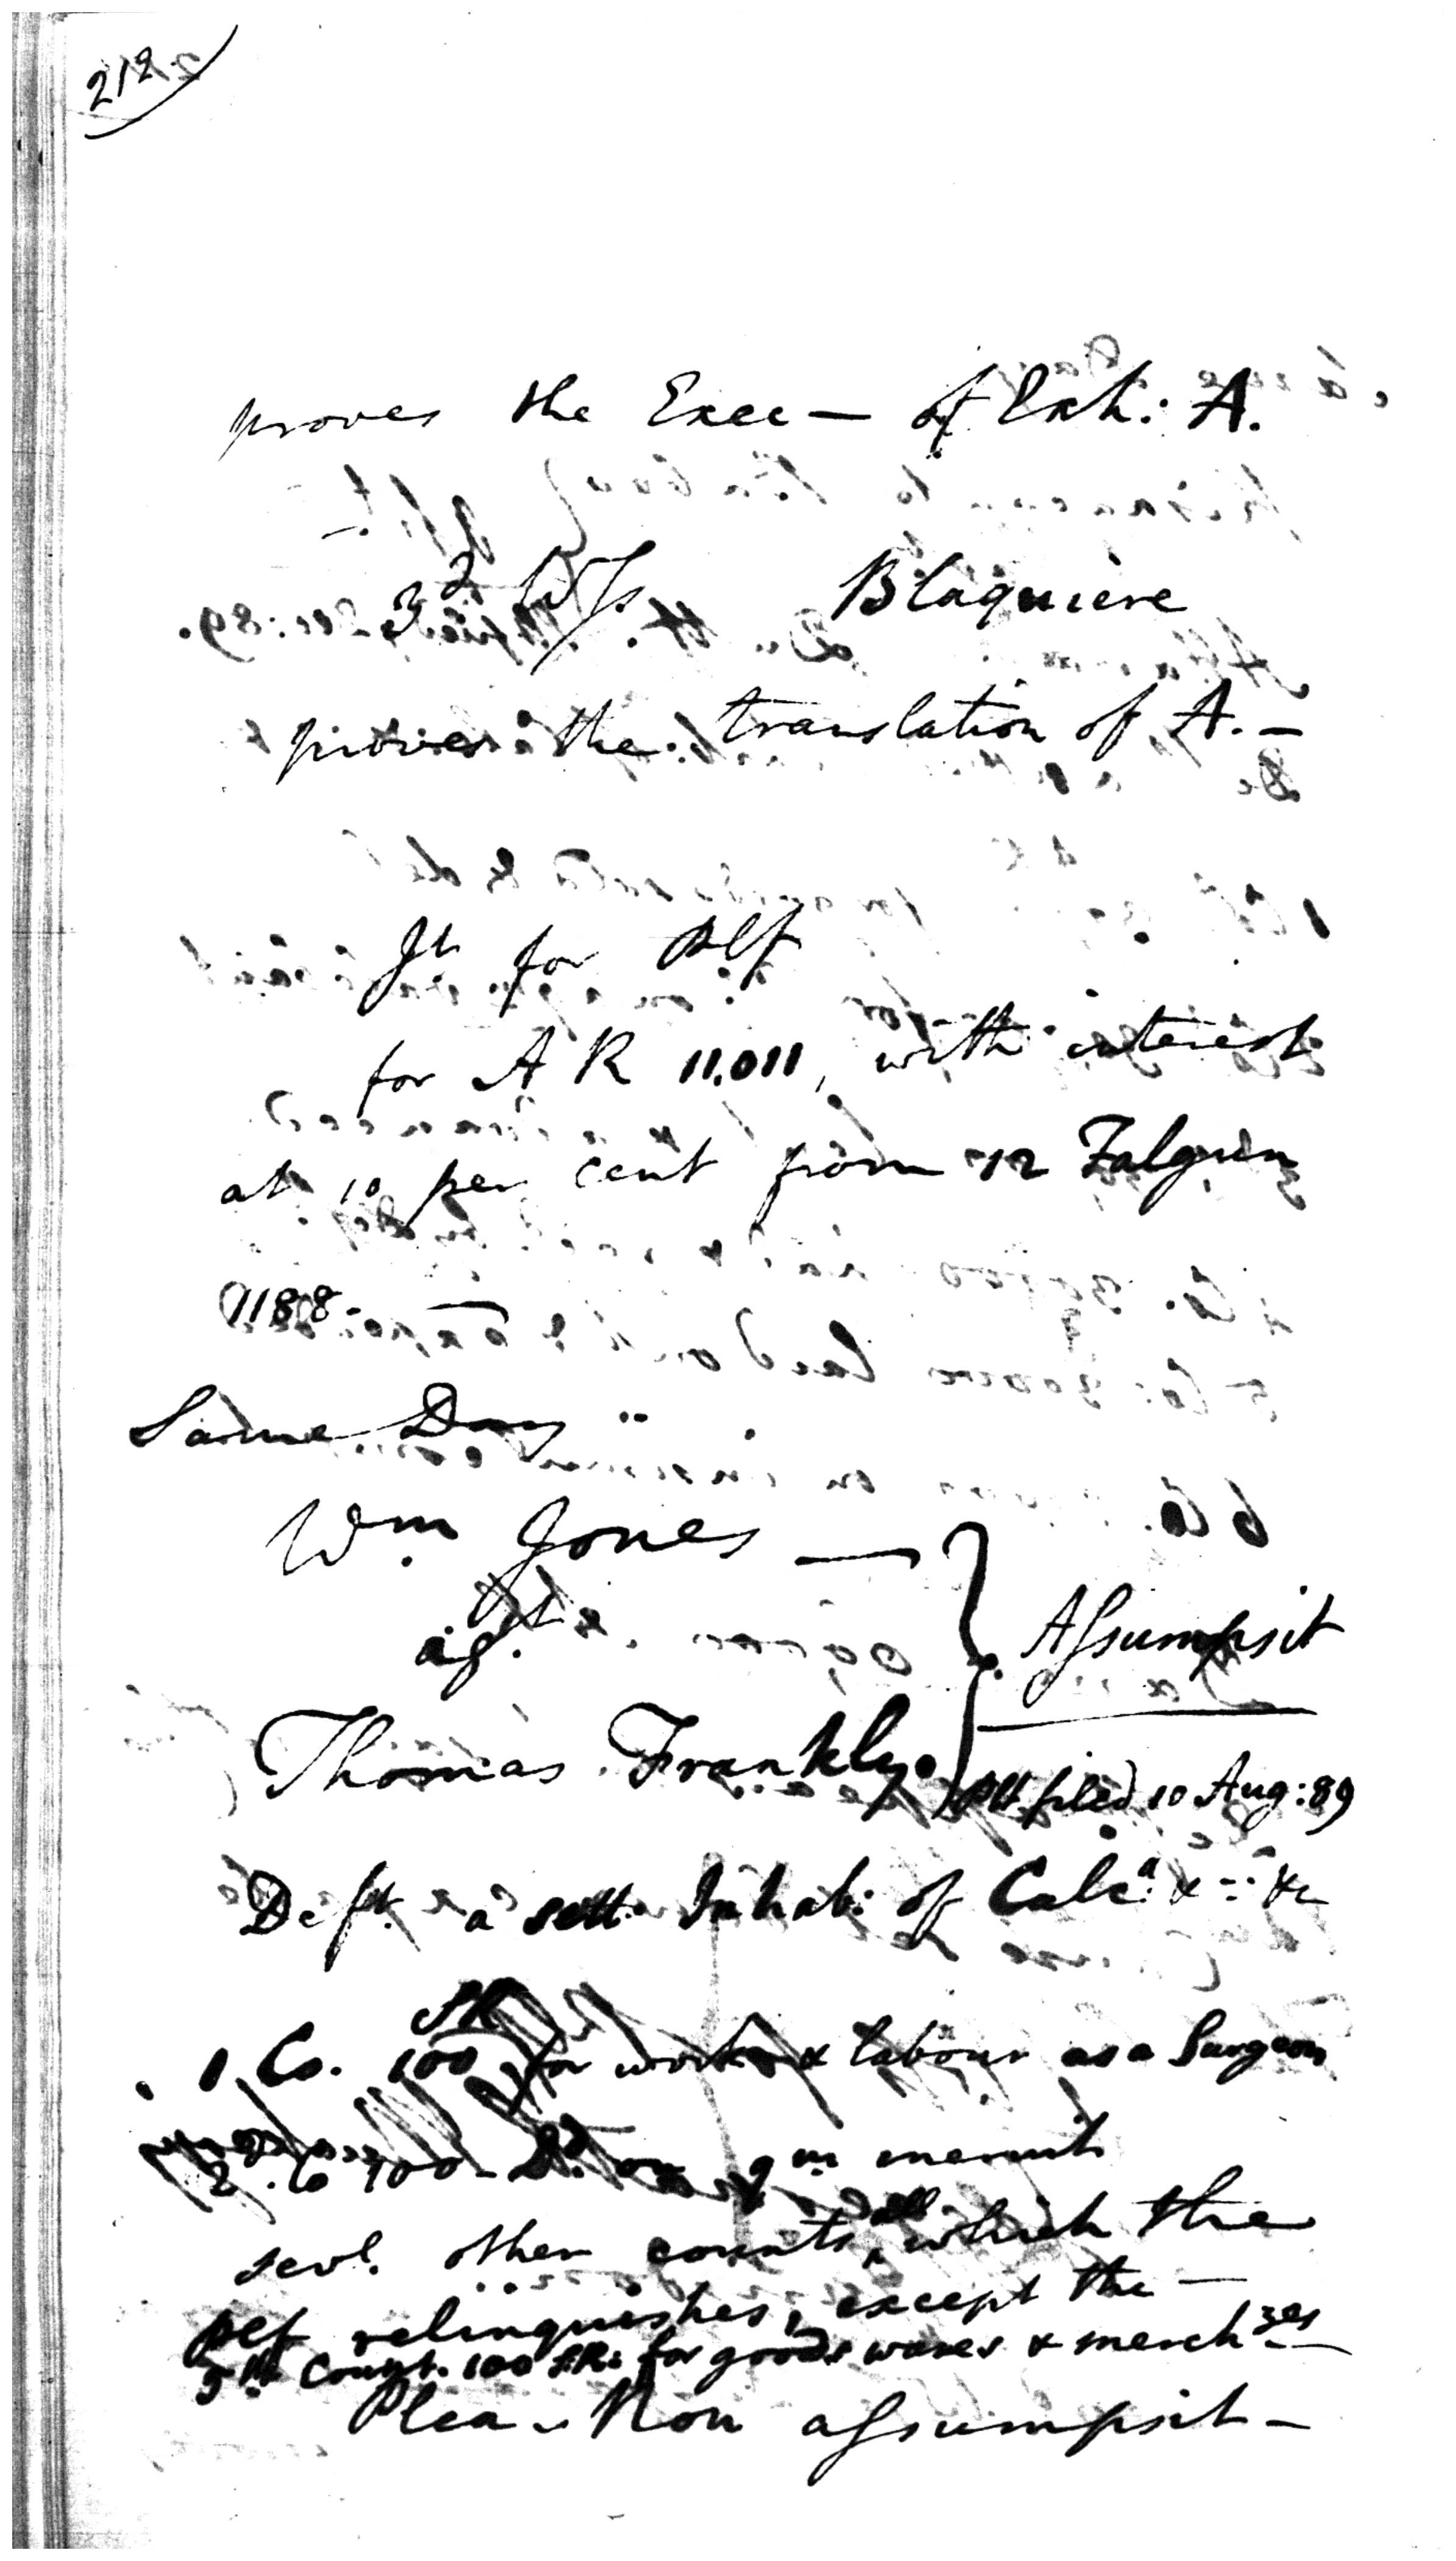 212
proves the Exec — of Exh: A.
3d Wss Blaquiere
proves the translation of A. —
Jt for Plf
for A R 11.011, with interest
at 10 per cent from 12 Falguen
1188. —
Same Day
Wm Jones —
agt Assumpsit
Thomas Frankly. Plt filed 10 Aug: 89
Deft. a sett. Inhab: of Calca. & — &c
1 Co. 100 SR for work & labour as a Surgeon
2d. Co 100 — Do. on qm meruit
sevl. other counts, all which the
Plf relinquishes, except the —
5th Count. 100 SR. for goods wares & merchzes —
Plea — Non assumpsit —